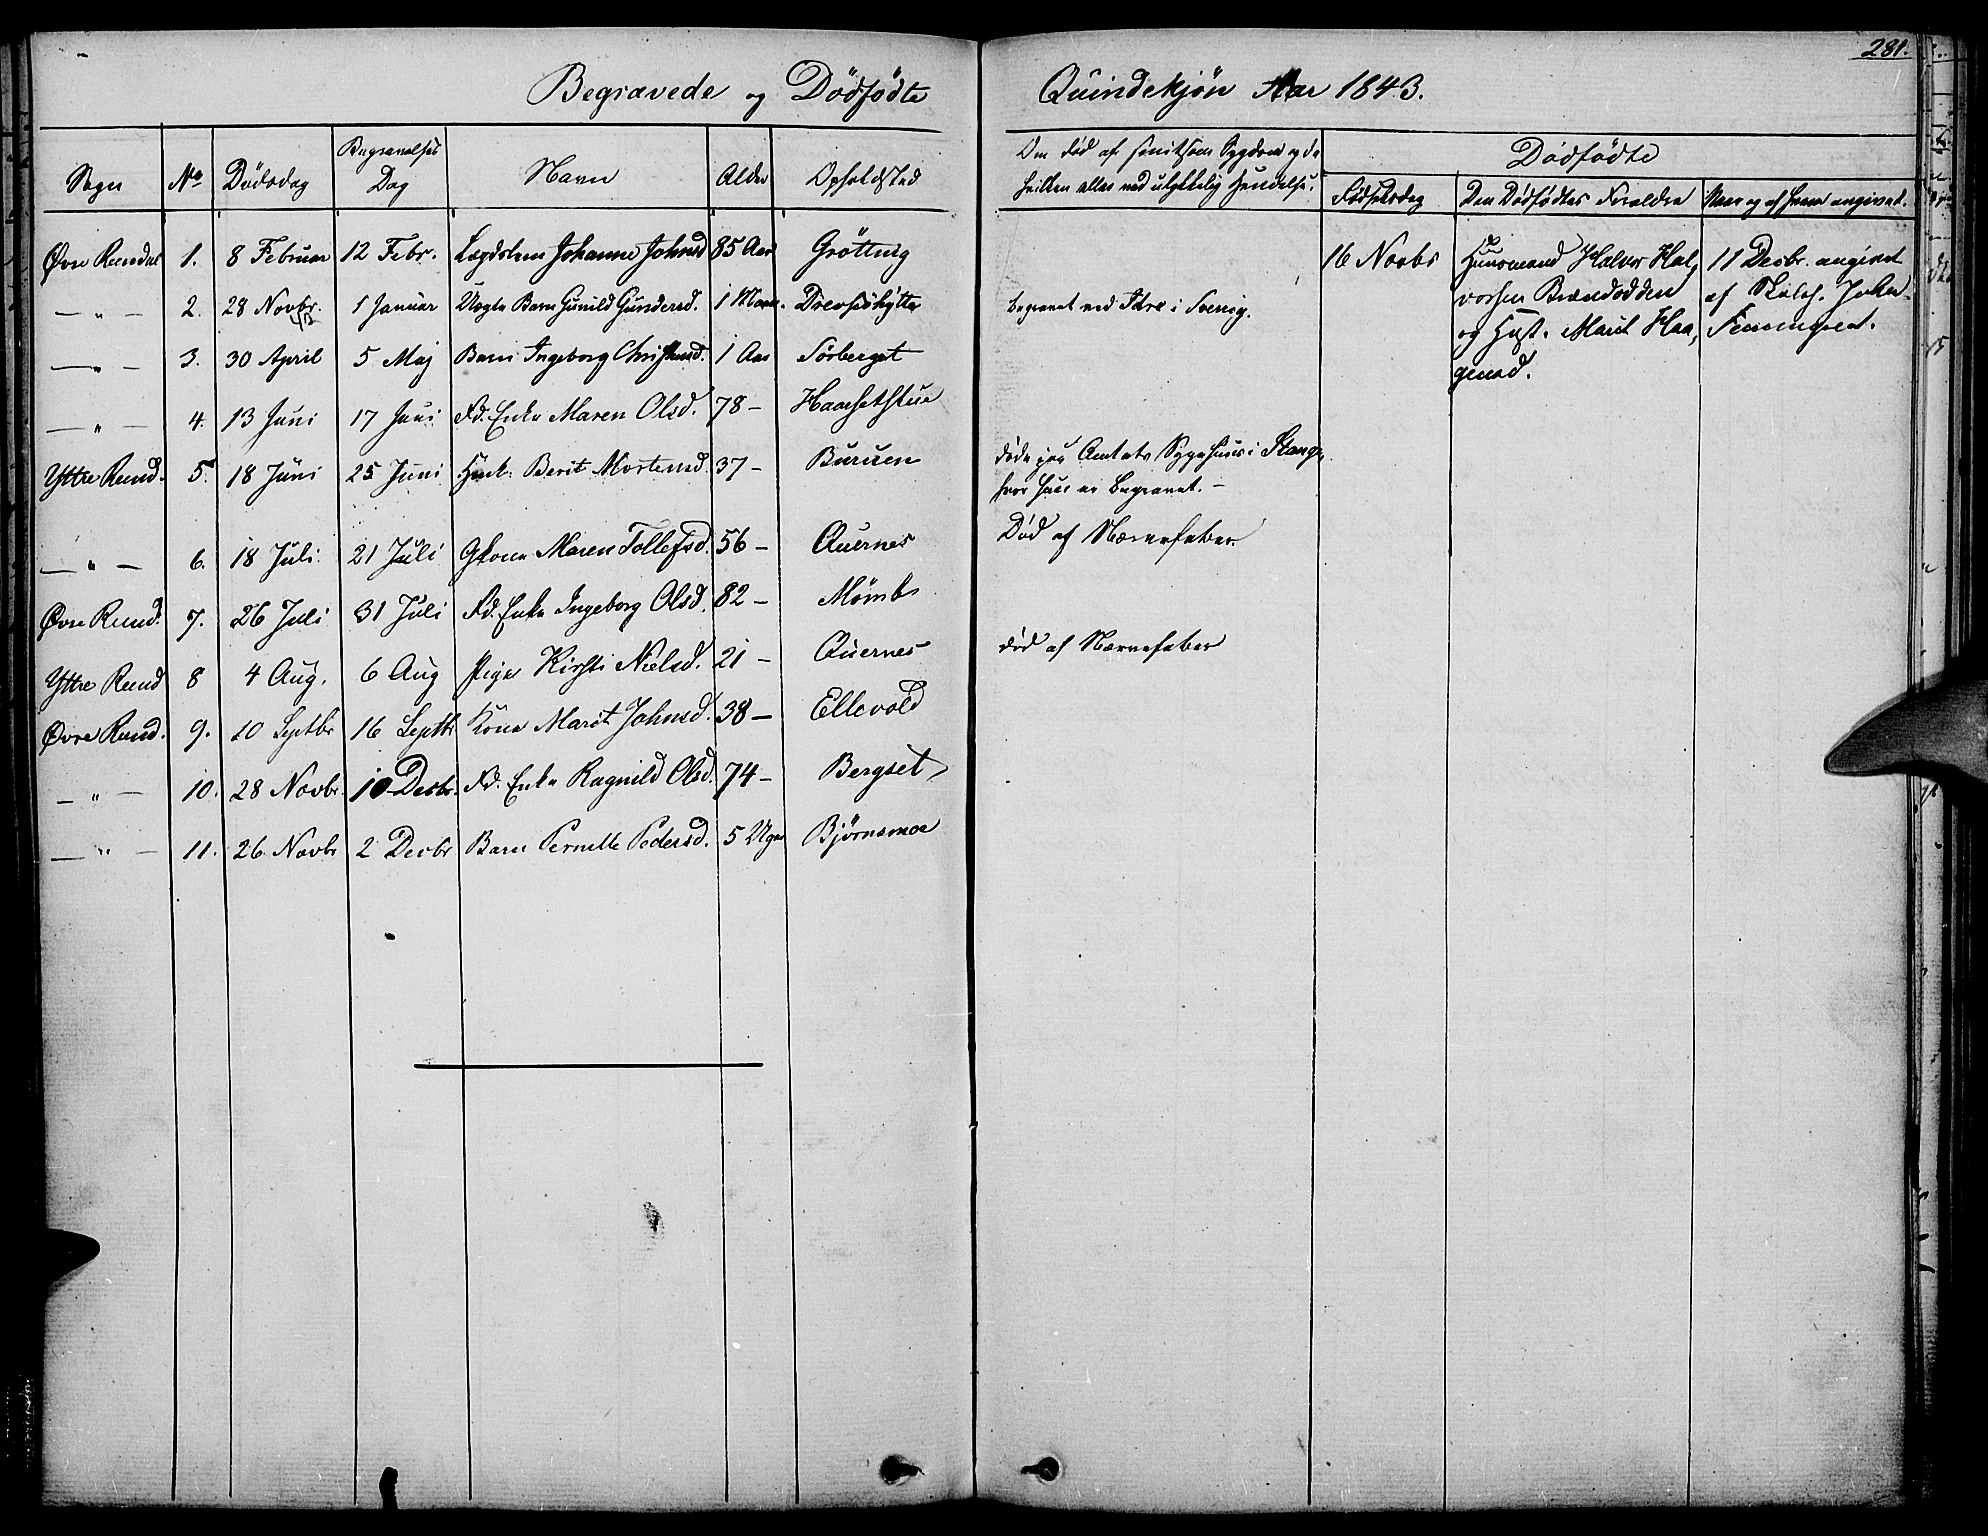 281.
Begravede og Dödfödte Quindekjön Aar 1843.
Sogn No Dödsdag Begravelses Dag Navn Alder Opholdsted Om død af smitsom Sygdom og da hvilken eller ved ulykkelig Hendelse. Dödfödte
Fødselsdag Den Dödfödtes Foreldre Naar og af hvem angivet.
Øvre Rendal 1. 8 Februar 12 Febr. Lægdslem Johanne Johnsd 85 Aar Grötting 16 Novbr Huusmand Halvor Hal- 11 Decbr. angivet
vorsen Brændodden af Skoleh. Johan
og Hust. Marit Haa- Femmingvet.
gensd.
— " — 2. 28 Novbr. 42 1 Januar Uægte Barn Gunild Gundersd. 1 Maan. Drevsjöhytte begravet ved Idre i Sverrig.
— " — 3. 30 April 5 Maj Barn Ingeborg Christensd. 1 Aar Sörberget
— " — 4. 13 Juni 17 Juni Fd. Enke Maren Olsd. 78 – Haarsetstue
Yttre Rend. 5. 18 Juni 25 Juni Berit Mortensd. 37 – Buruen døde paa Amtets Sygehuus i Stange,
hvor hun er begravet. –
— " — 6. 18 Juli 21 Juli Gkone Maren Tollefsd. 56 – Quernes Död af Nervefeber.
Øvre Rend. 7. 26 Juli 31 Juli Fd. Enke Ingeborg Olsd. 82 –
Yttre Rend 8 4 Aug. 6 Aug Pige Kirsti Nielsd. 21 – Quernes död af Nervefeber
Øvre Rend. 9. 10 Septbr 16 Septbr Kone Marit Johnsd. 38 – Ellevold
— " — 10. 28 Novbr. 10 Decbr. Fd. Enke Ragnild Olsd. 74 – Bergset
— " — 11. 26 Novbr 2 Decbr Barn Pernille Pedersd. 5 Uger Björnsmoe